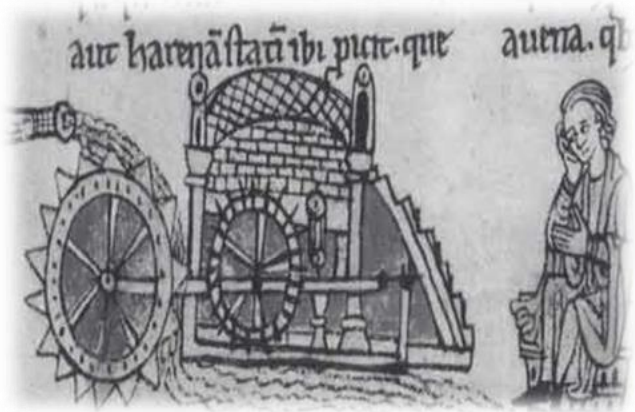 aut harenā statī ibi picit. que avena. qb